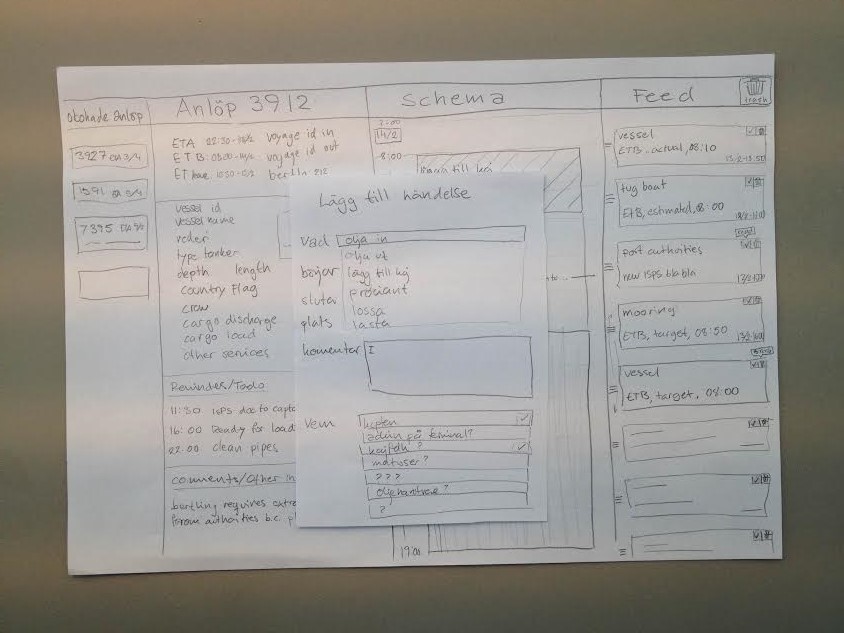 Anlöp 3912
Schema
Feed
trash
3927
7395
ETA 22:30
voyage id in
ETB
voyage id out
berlin 212
vessel id
vessel name
rederi
type tanker
depth length
country flag
crew
cargo discharge
cargo load
other services
Reminder/Todo
11:30 ISPS doc to capt
16:00 Ready for load
22:00 clean pipes
comments/other in
berthing requires extra
from authorities b.c. pl
14/2
8:00
19:00
Lägg till händelse
vad
olja in
olja ut
börjar
lägg till kaj
sluta
proviant
lossa
plats
lasta
komentar
I
Vem
kapten
???
?
vessel
ETB, actual, 08:10
tug boat
ETB, estimated, 8:00
port authorities
new ISPS bla bla
mooring
ETB, target, 08:50
vessel
ETB, target, 08:00